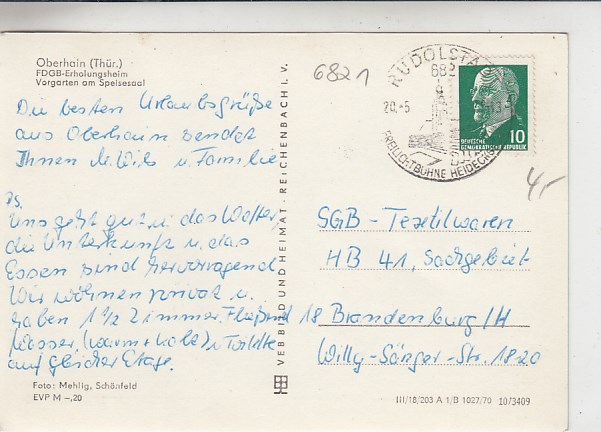 Oberhain (Thür.)
FDGB-Erholungsheim
Vorgarten am Speisesaal
Die besten Urlaubsgrüße
aus Oberhain sendet
Ihnen M. Wils u. Familie
Ps.
Uns geht gut u. das Wetter,
die Unterkunft u. das
Essen sind hervorragend.
Wir wohnen privat u.
haben 1 1/2 Zimmer. Fließend
Wasser (warm + kalt) u. Toilette
auf gleicher Etage.
Foto: Mehlig, Schönfeld
EVP M –,20
VEB BILD UND HEIMAT · REICHENBACH I. V.
6821
RUDOLSTADT
682
20.-5
FREILICHTBÜHNE HEIDECKSBURG
10
DEUTSCHE
DEMOKRATISCHE REPUBLIK
4,-
SGB - Textilwaren
HB 41, Sachgebiet
18 Brandenburg/H
Willy-Sänger-Str. 1820
III/18/203 A 1/B 1027/70 10/3409